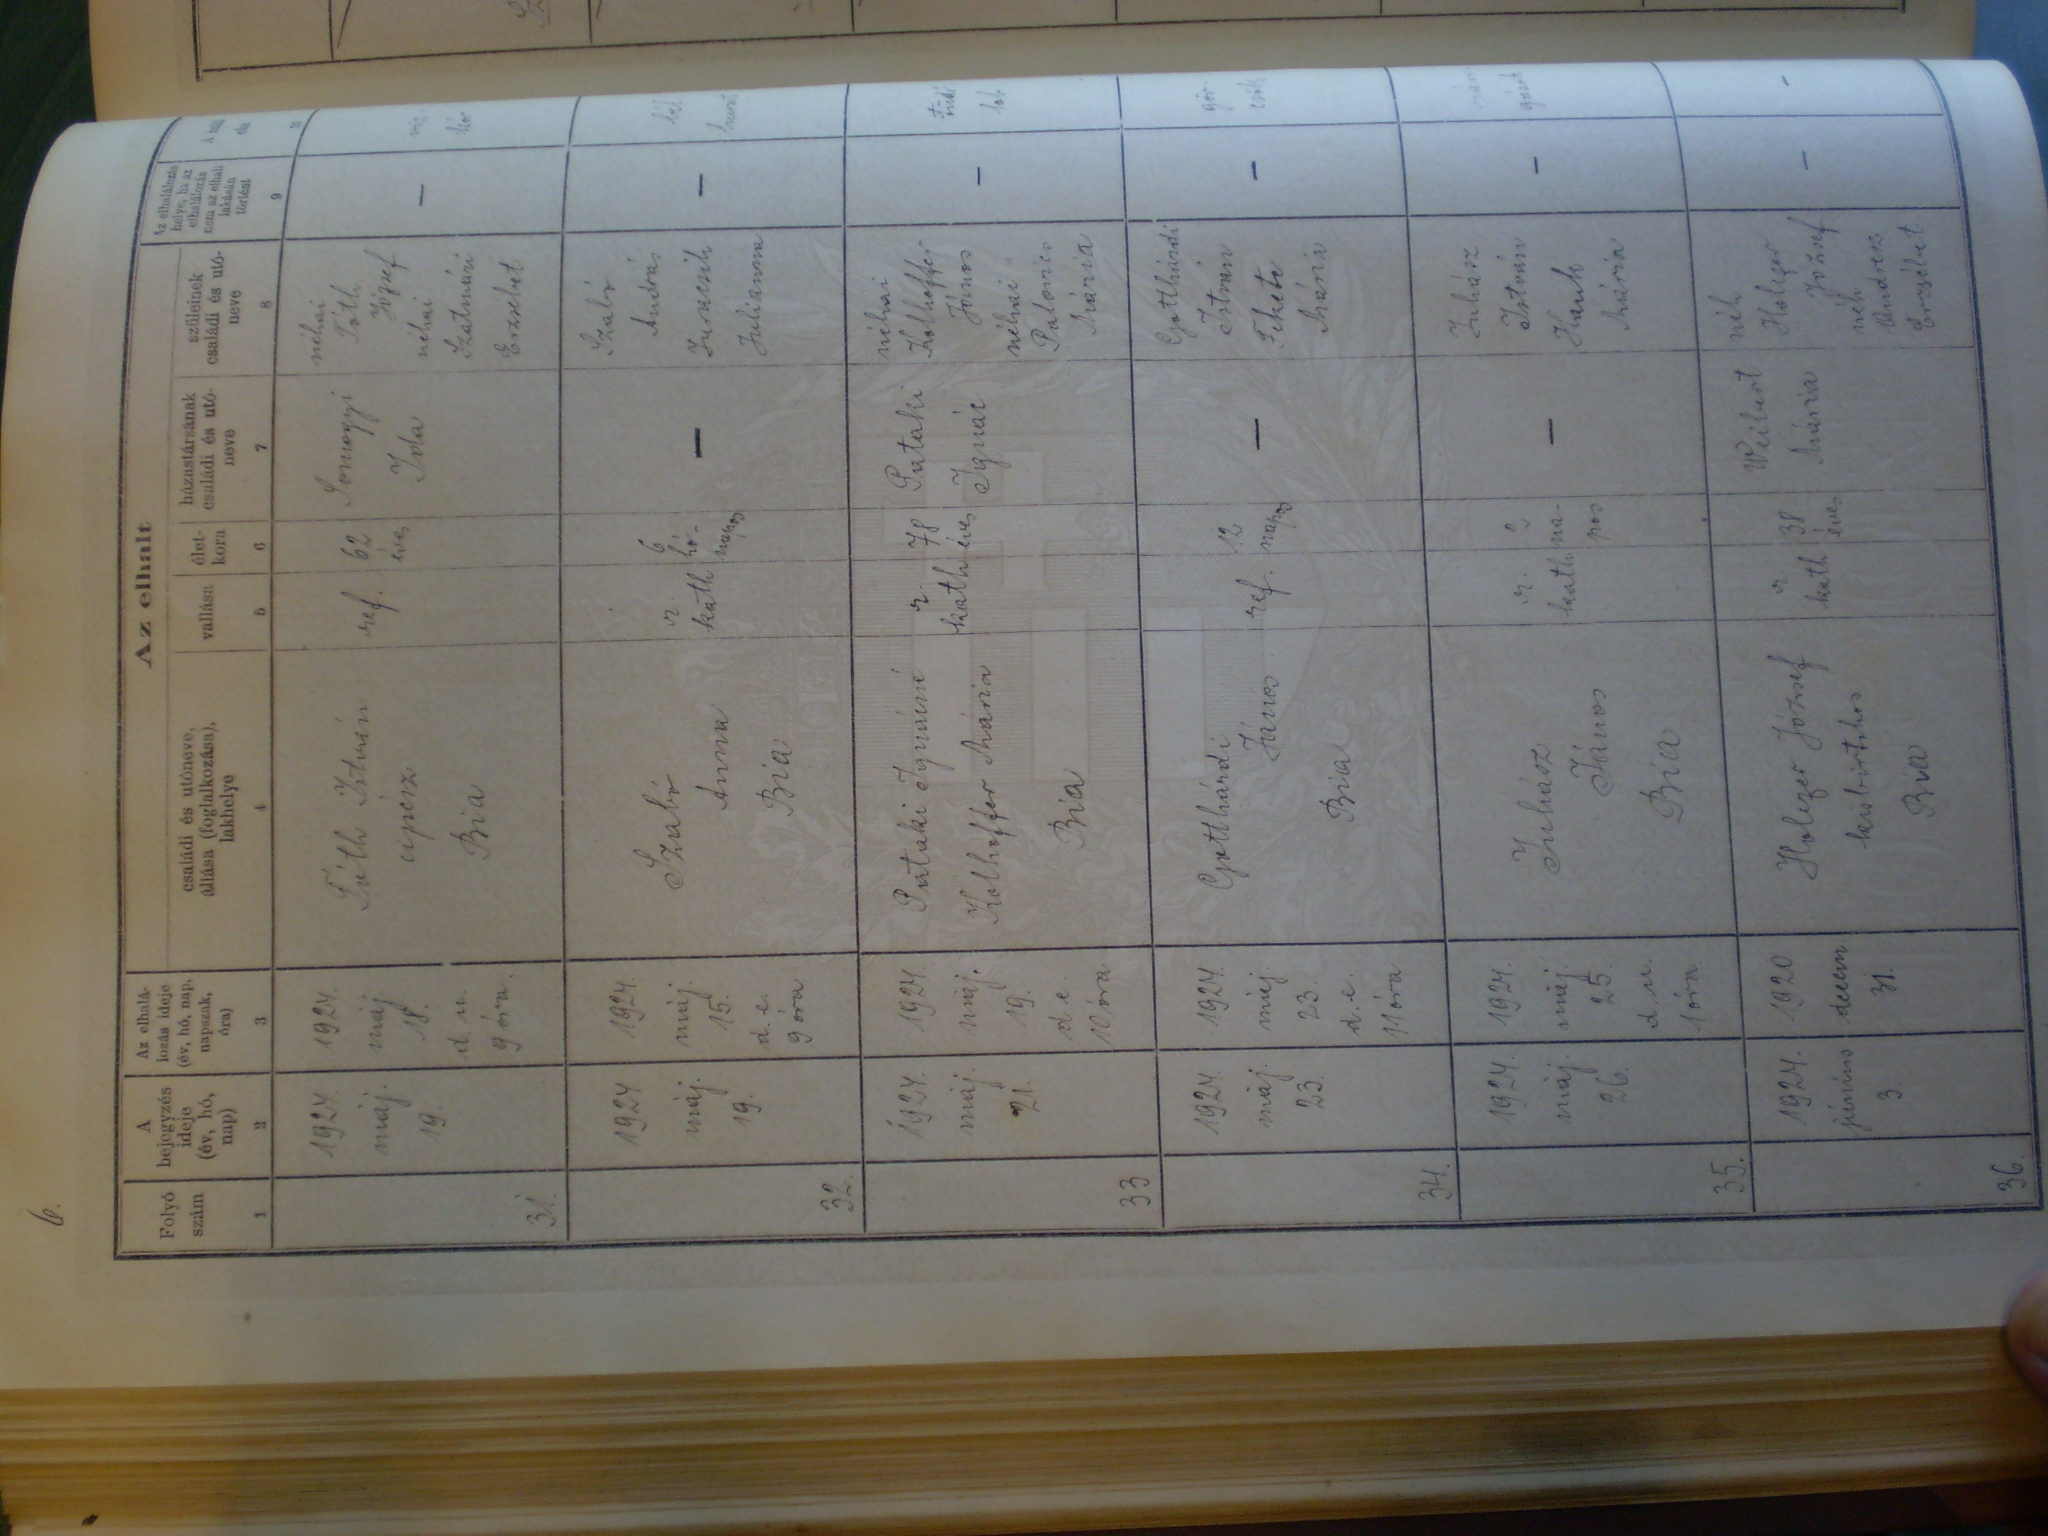 6.
Az elhalt
Folyó
szám
A
bejegyzés
ideje
(év, hó,
nap)
Az elhalá-
lozás ideje
(év, hó, nap,
napszak,
óra)
családi és utóneve,
állása (foglalkozása),
lakhelye
vallása
élet-
kora
házastársának
családi és utó-
neve
szüleinek
családi és utó-
neve
Az elhalálozás
helye, ha az
elhalálozás
nem az elhalt
lakásán
történt
1
2
3
4
5
6
7
8
9
31.
1924.
máj.
19.
1924.
máj.
18.
d. u.
9 óra.
Tóth István
cipész
Bia
ref.
62
éves
Somogyi
Ida
néhai
Tóth
József
néhai
Szatmári
Erzsébet
—
32.
1924
máj.
19.
1924.
máj.
15.
d. e.
9 óra
Szabó
Anna
Bia
r.
kath
6
hó-
napos
—
Szabó
András
Julianna
—
33
1924.
máj.
21.
1924.
máj.
19.
d. e.
10 óra
Pataki Ignácné
Kolhoffer Mária
Bia
r.
kath
78
éves
Pataki
Ignác
néhai
Kolhoffer
János
néhai
Palovics
Mária
—
34.
1924.
máj.
23.
1924.
máj.
23.
d. e.
11 óra
Gotthárdi
János
Bia
ref.
12
napos
—
Gotthárdi
István
Fekete
Mária
—
35.
1924.
máj.
26.
1924.
máj.
25.
d. u.
1 óra
Juhász
János
Bia
r.
kath
2
na-
pos
—
Juhász
István
Hauk
Mária
—
36.
1924.
június
3
1920
decem
31.
Holczer József
kisbirtokos
Bia
r.
kath
38
éves
Mária
néh
Holczer
József
néh
Erzsébet
—
-